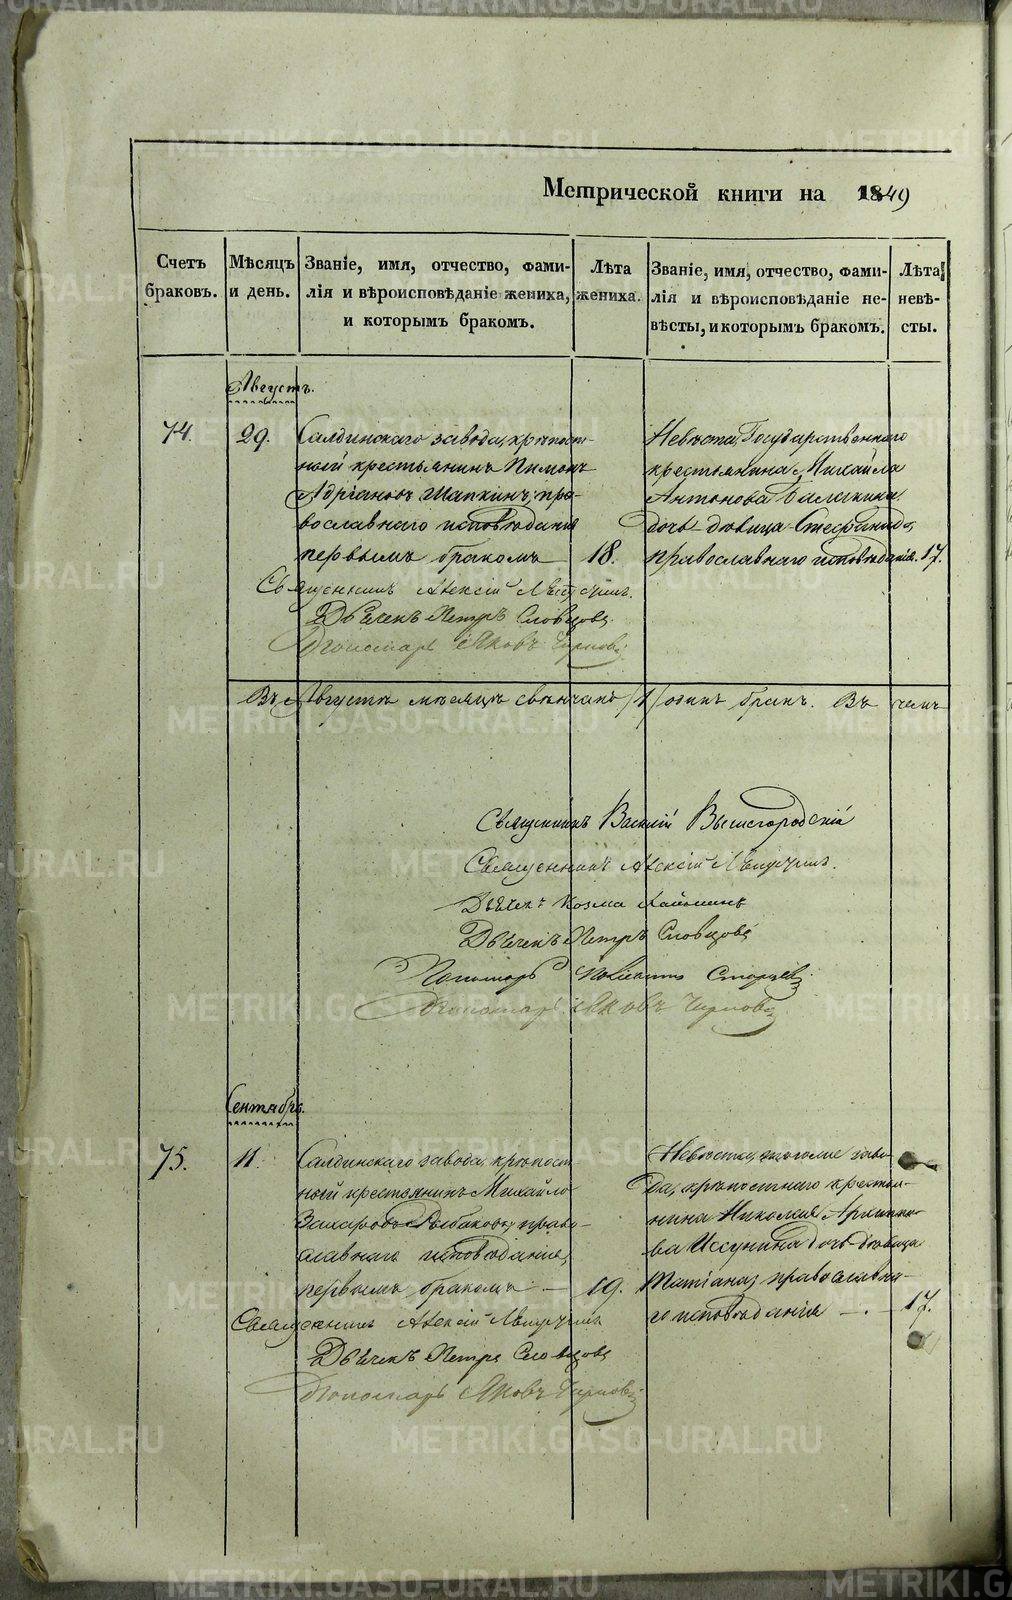 METRIKI.GASO-URAL.RU
Метрической книги на 1849
Счетъ браковъ.
Мѣсяцъ и день.
Званіе, имя, отчество, фами-
лія и вѣроисповѣданіе жениха,
и которымъ бракомъ.
Лѣта жениха.
Званіе, имя, отчество, фами-
лія и вѣроисповѣданіе не-
вѣсты, и которымъ бракомъ.
Лѣта невѣ-
сты.
Августъ.
74.
29.
Салдинскаго завода, крѣпост-
ный крестьянинъ Пимонъ
Адріановъ Шапкинъ, пра-
вославнаго исповѣданія
первымъ бракомъ
18.
Невѣста, Государственнаго
крестьянина Михайла
Антонова
дочь дѣвица Стефанида,
православнаго исповѣданія.
17.
Священникъ Алексій
Дьячекъ Петръ Словцовъ
Пономарь Яковъ
Въ Августѣ мѣсяцѣ свѣнчанъ /1/ одинъ бракъ. Въ чемъ
Священникъ Василій Вышегородскій
Священникъ Алексій
Дьячекъ Козма
Дьячекъ Петръ Словцовъ
Пономарь Старцевъ
Пономарь Яковъ
Сентябрь.
75.
11.
Салдинскаго завода, крѣпост-
ный крестьянинъ Михайло
Захаровъ Рыбаковъ, право-
славнаго исповѣданія,
первымъ бракомъ. —
19.
Невѣста, тоголие заво-
да, крѣпостнаго крестья-
нина Николая Архипо-
ва дочь дѣвица
Татіана, православна-
го исповѣданія — . —
17.
Священникъ Алексій
Дьячекъ Петръ Словцовъ
Пономарь Яковъ